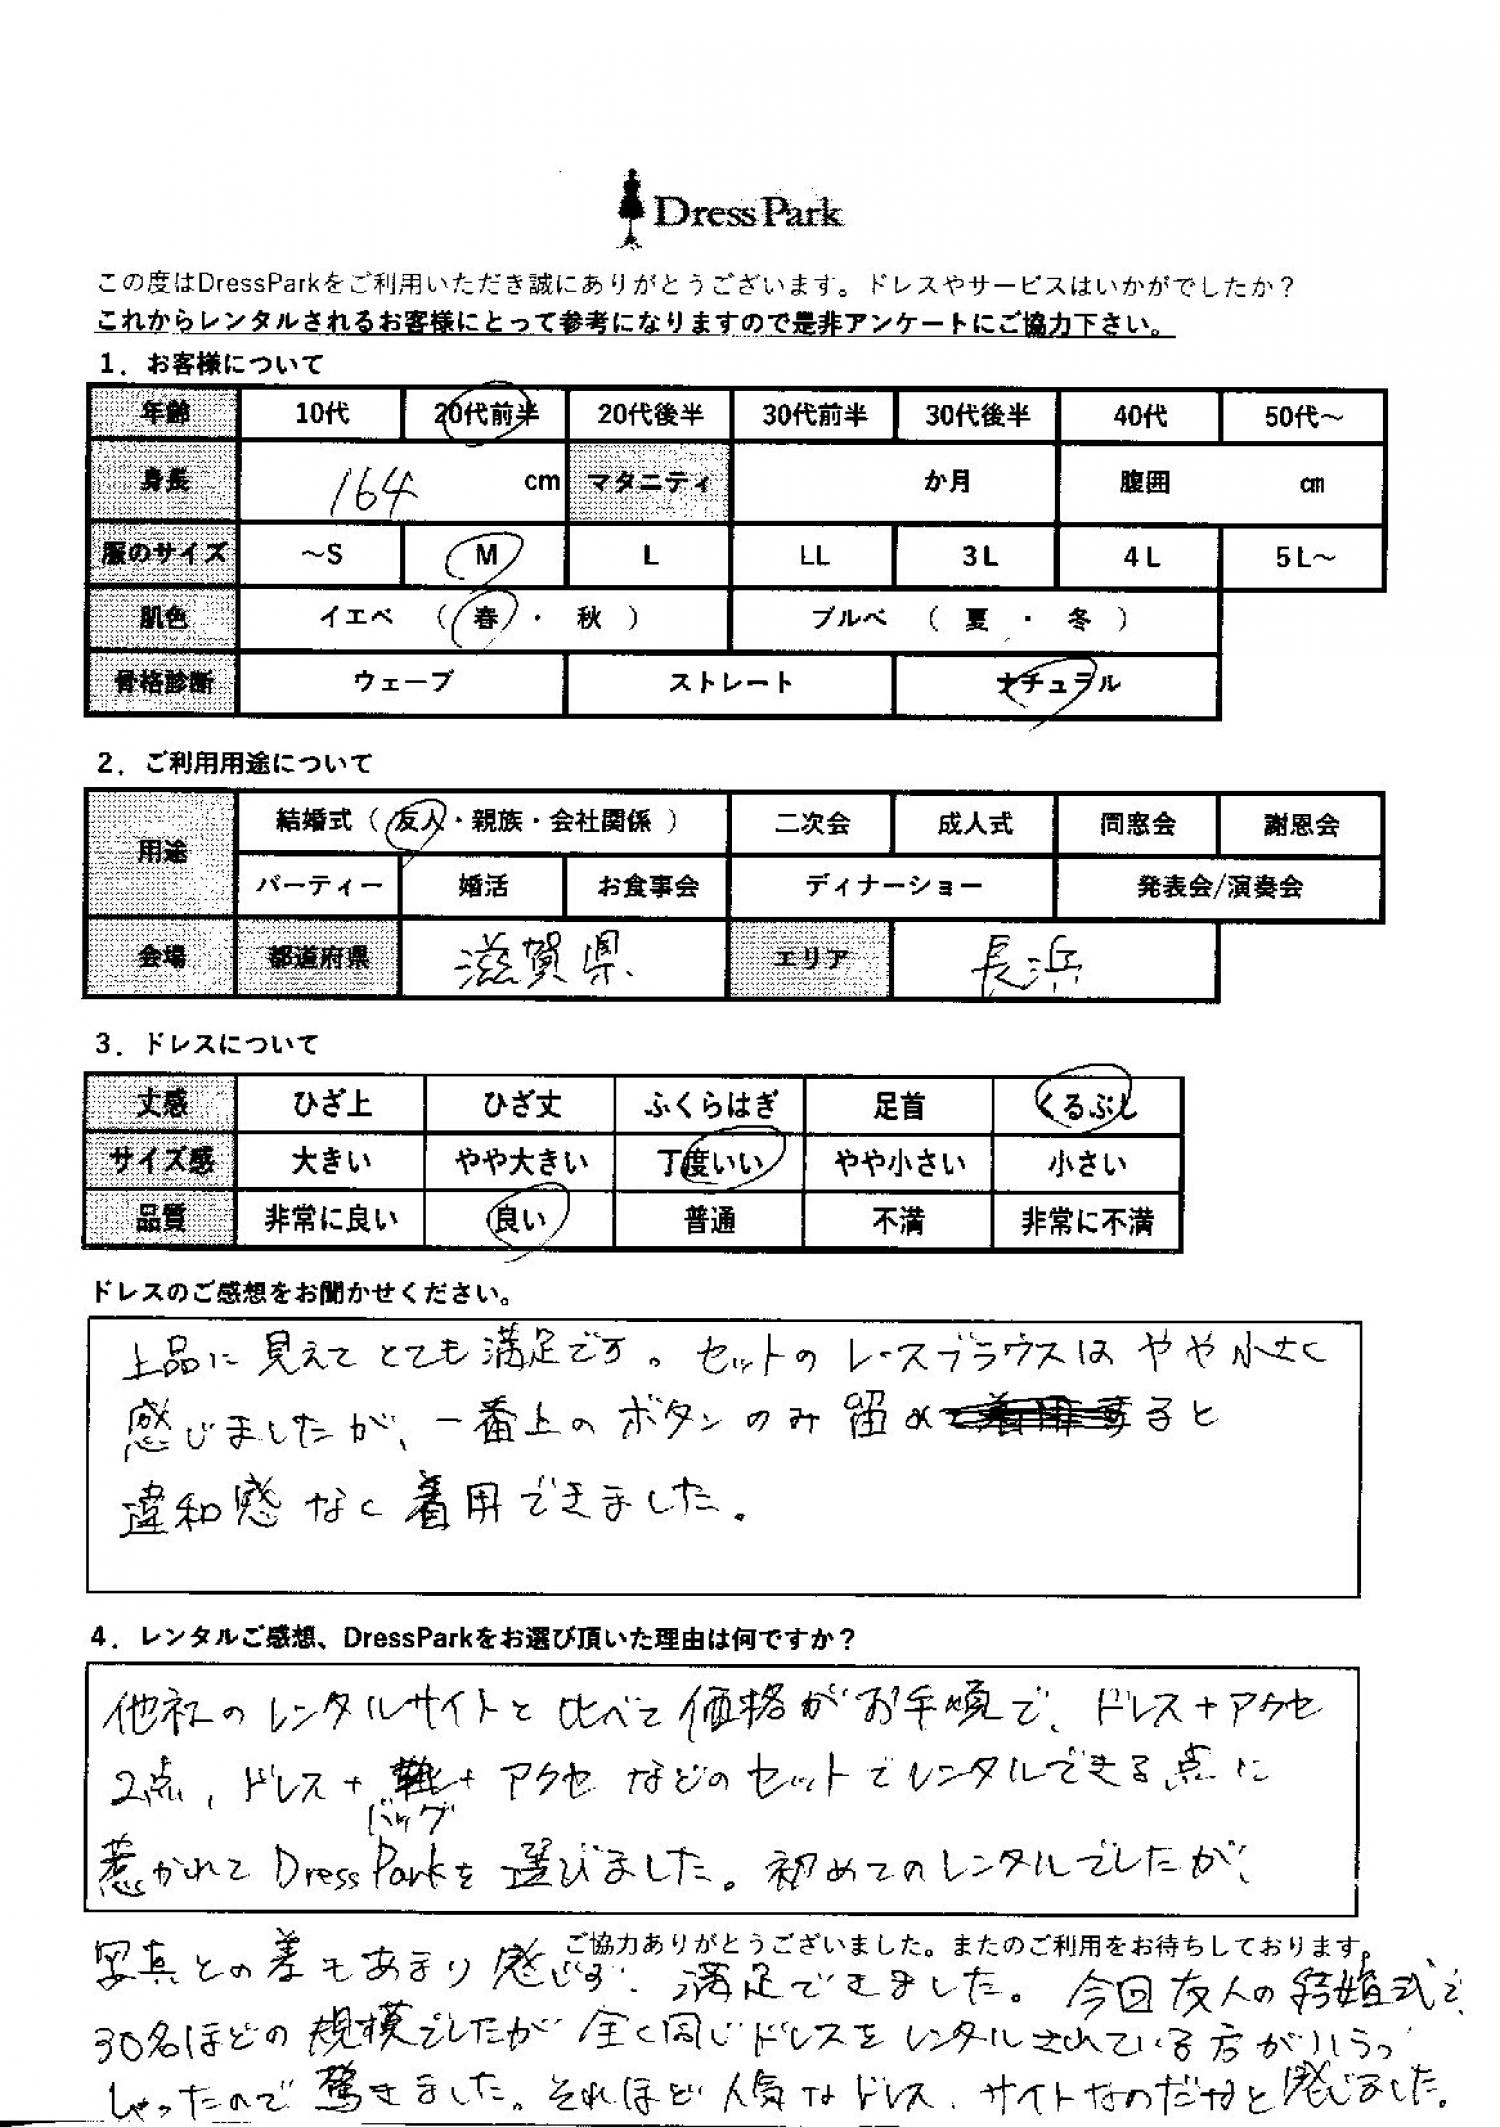 Dress Park
この度はDressParkをご利用いただき誠にありがとうございます。ドレスやサービスはいかがでしたか？
これからレンタルされるお客様にとって参考になりますので是非アンケートにご協力下さい。
1．お客様について
年齢 10代 20代前半 20代後半 30代前半 30代後半 40代 50代～
身長 164 cm マタニティ か月 腹囲 cm
服のサイズ ～S M L LL 3L 4L 5L～
肌色 イエベ （ 春 ・ 秋 ） ブルべ （ 夏 ・ 冬 ）
骨格診断 ウェーブ ストレート ナチュラル
2．ご利用用途について
用途 結婚式（ 友人・親族・会社関係 ） 二次会 成人式 同窓会 謝恩会
パーティー 婚活 お食事会 ディナーショー 発表会/演奏会
会場 都道府県 滋賀県 エリア 長浜
3．ドレスについて
丈感 ひざ上 ひざ丈 ふくらはぎ 足首 くるぶし
サイズ感 大きい やや大きい 丁度いい やや小さい 小さい
品質 非常に良い 良い 普通 不満 非常に不満
ドレスのご感想をお聞かせください。
上品に見えてとても満足です。セットのレースブラウスはやや小さく
感じましたが、一番上のボタンのみ留めると
違和感なく着用できました。
4．レンタルご感想、DressParkをお選び頂いた理由は何ですか？
他社のレンタルサイトと比べて価格がお手頃で、ドレス＋アクセ
2点、ドレス＋靴＋アクセなどのセットでレンタルできる点に
バッグ
惹かれてDress Parkを選びました。初めてのレンタルでしたが、
ご協力ありがとうございました。またのご利用をお待ちしております。
写真との差もあまり感じず、満足できました。今回友人の結婚式で、
30名ほどの規模でしたが全く同じドレスをレンタルされている方がいらっ
しゃったので驚きました。それほど人気なドレス、サイトなのだなと感じました。